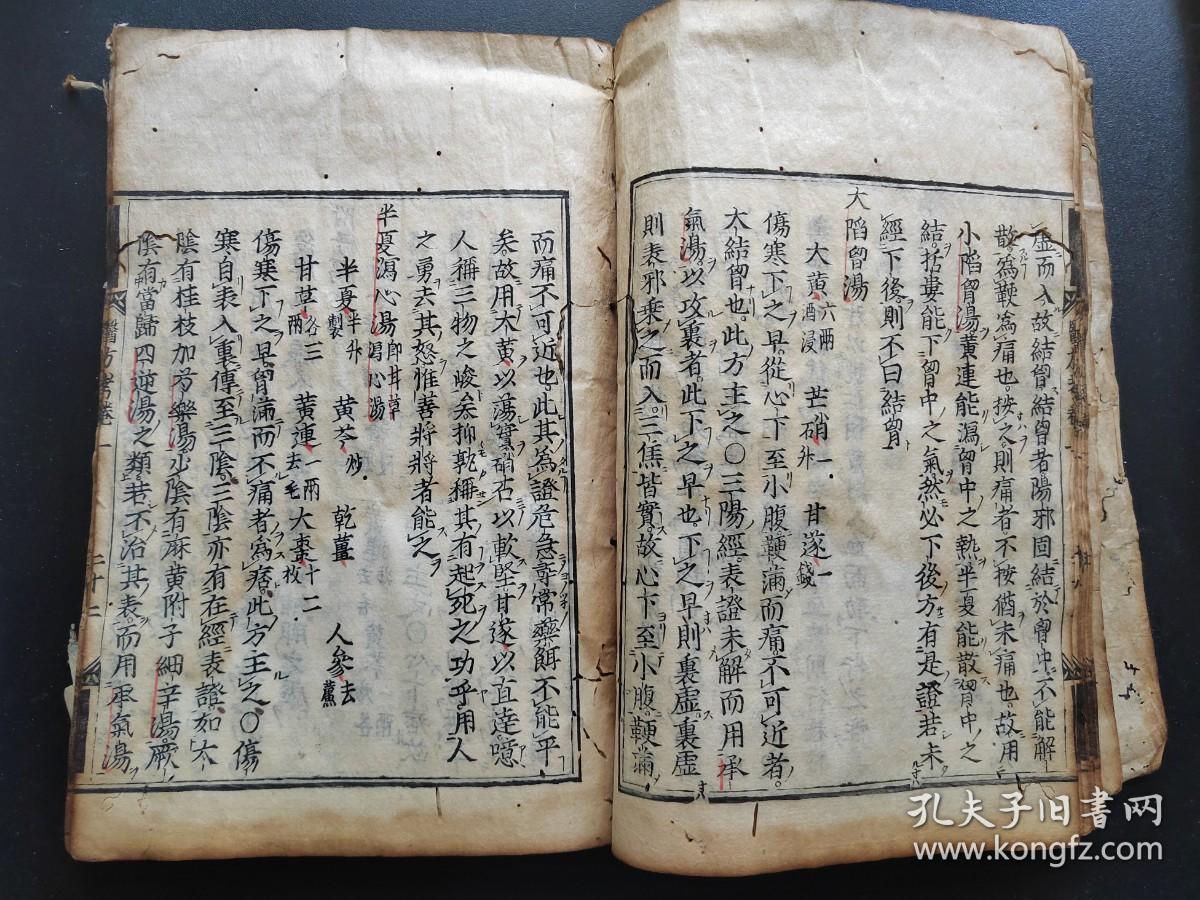 虛而入故結胷結胷者陽邪固結於胷中不能解
散為鞕為痛也按之則痛者不按猶未痛也故用
小陷胷湯黃連能瀉胷中之熱半夏能散胷中之
結栝蔞能下胷中之氣然必下後方有是證若未
經下後則不曰結胷
大陷胷湯
大黃六兩酒浸 芒硝一升 甘遂一錢
傷寒下之早從心下至小腹鞕滿而痛不可近者
大結胷也此方主之〇三陽經表證未解而用承
氣湯以攻裏者此下之早也下之早則裏虛裏虛
則表邪乗之而入三焦皆實故心下至小腹鞕滿
而痛不可近也此其為證危急尋常藥餌不能平
矣故用大黃以蕩實硝石以軟堅甘遂以直達噫
人稱三物之峻矣抑孰稱其有起死之功乎用人
之勇去其怒惟善將將者能之
半夏瀉心湯即甘草瀉心湯
半夏半升製 黃芩炒 乾薑 人參去蘆
甘草各三兩 黃連一兩去毛 大棗十二枚
傷寒下之早胷滿而不痛者為痞此方主之〇傷
寒自表入裏傳至三陰三陰亦有在經表證如太
陰有桂枝加芍藥湯少陰有麻黃附子細辛湯厥
陰有當歸四逆湯之類若不治其表而用承氣湯
醫方考卷一
二十二
孔夫子旧书网
www.kongfz.com